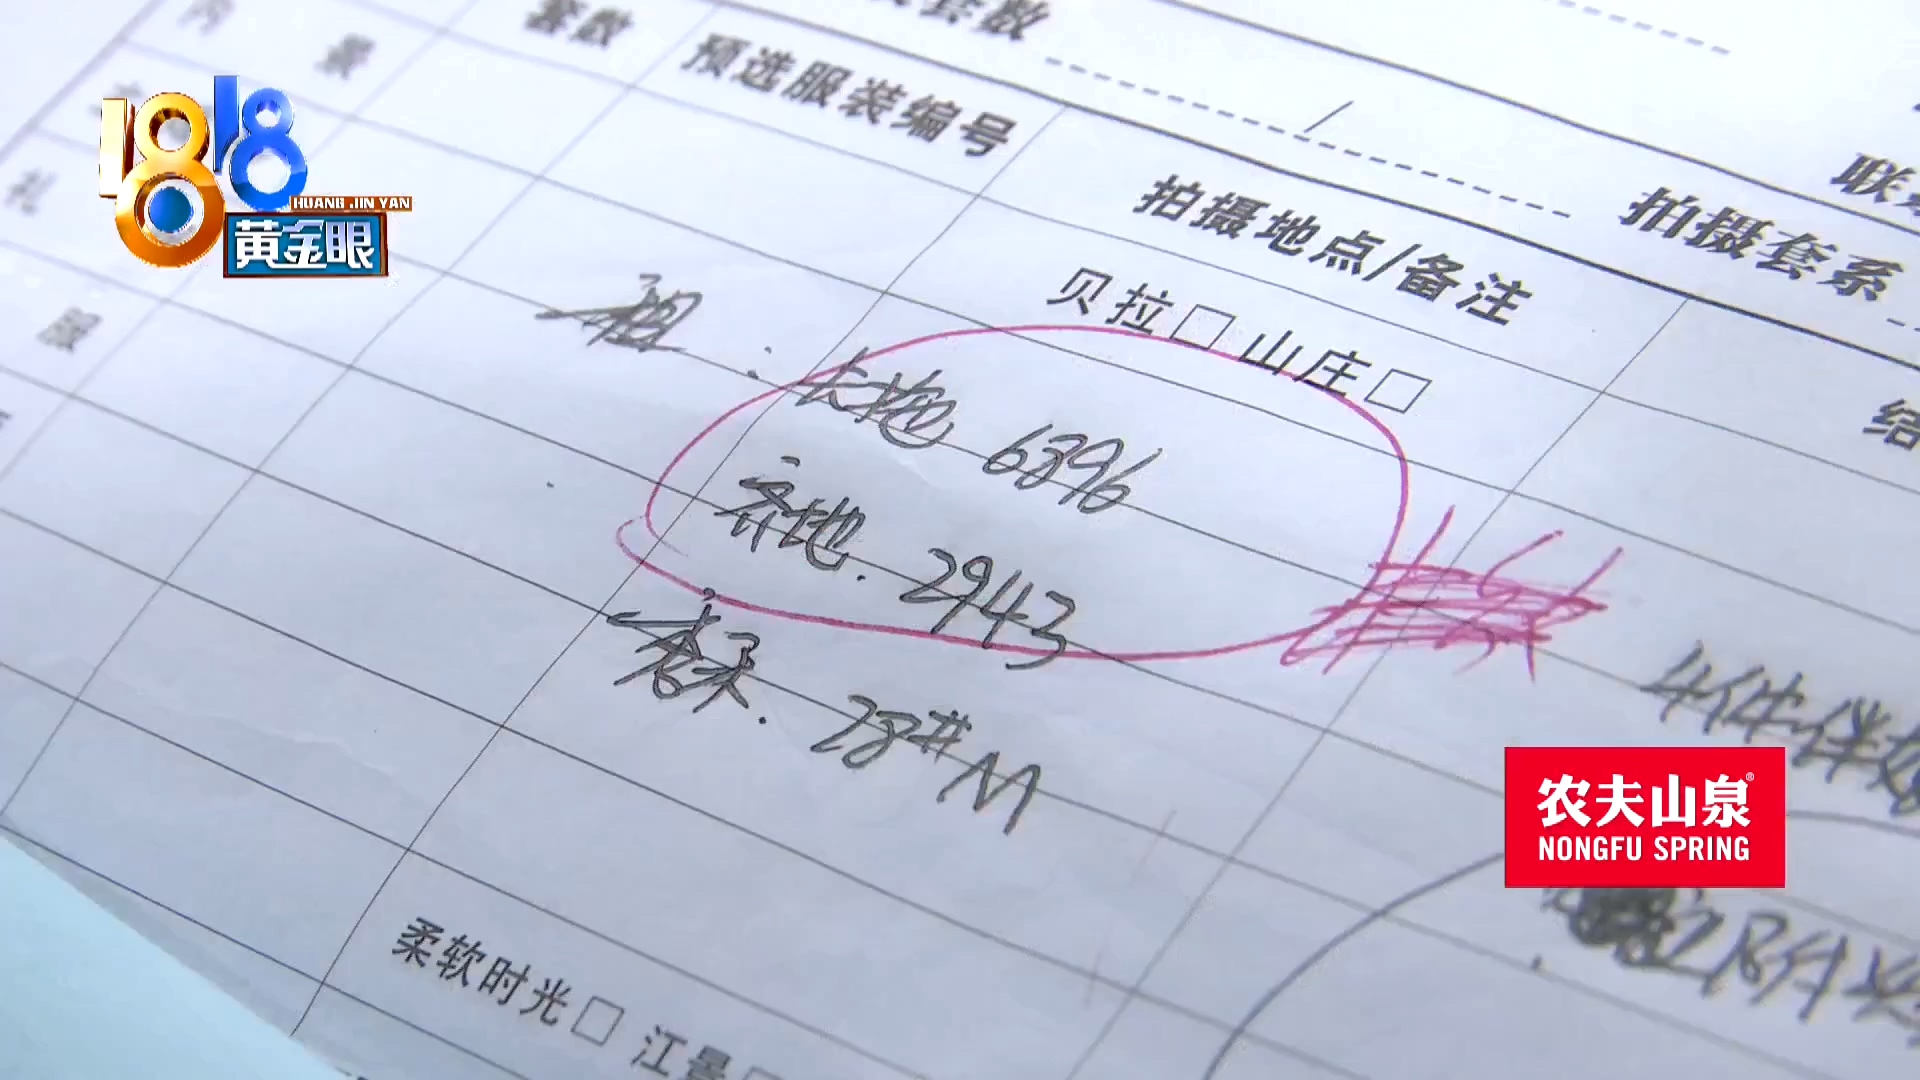 套数
预选服装编号
联
拍摄地点/备注
拍摄套系
贝拉□山庄□
结
礼
服
1818
HUANG JIN YAN
黄金眼
租
长拖 6396
齐地. 2943
28#M
4件伴
农夫山泉®
NONGFU SPRING
柔软时光□ 江景